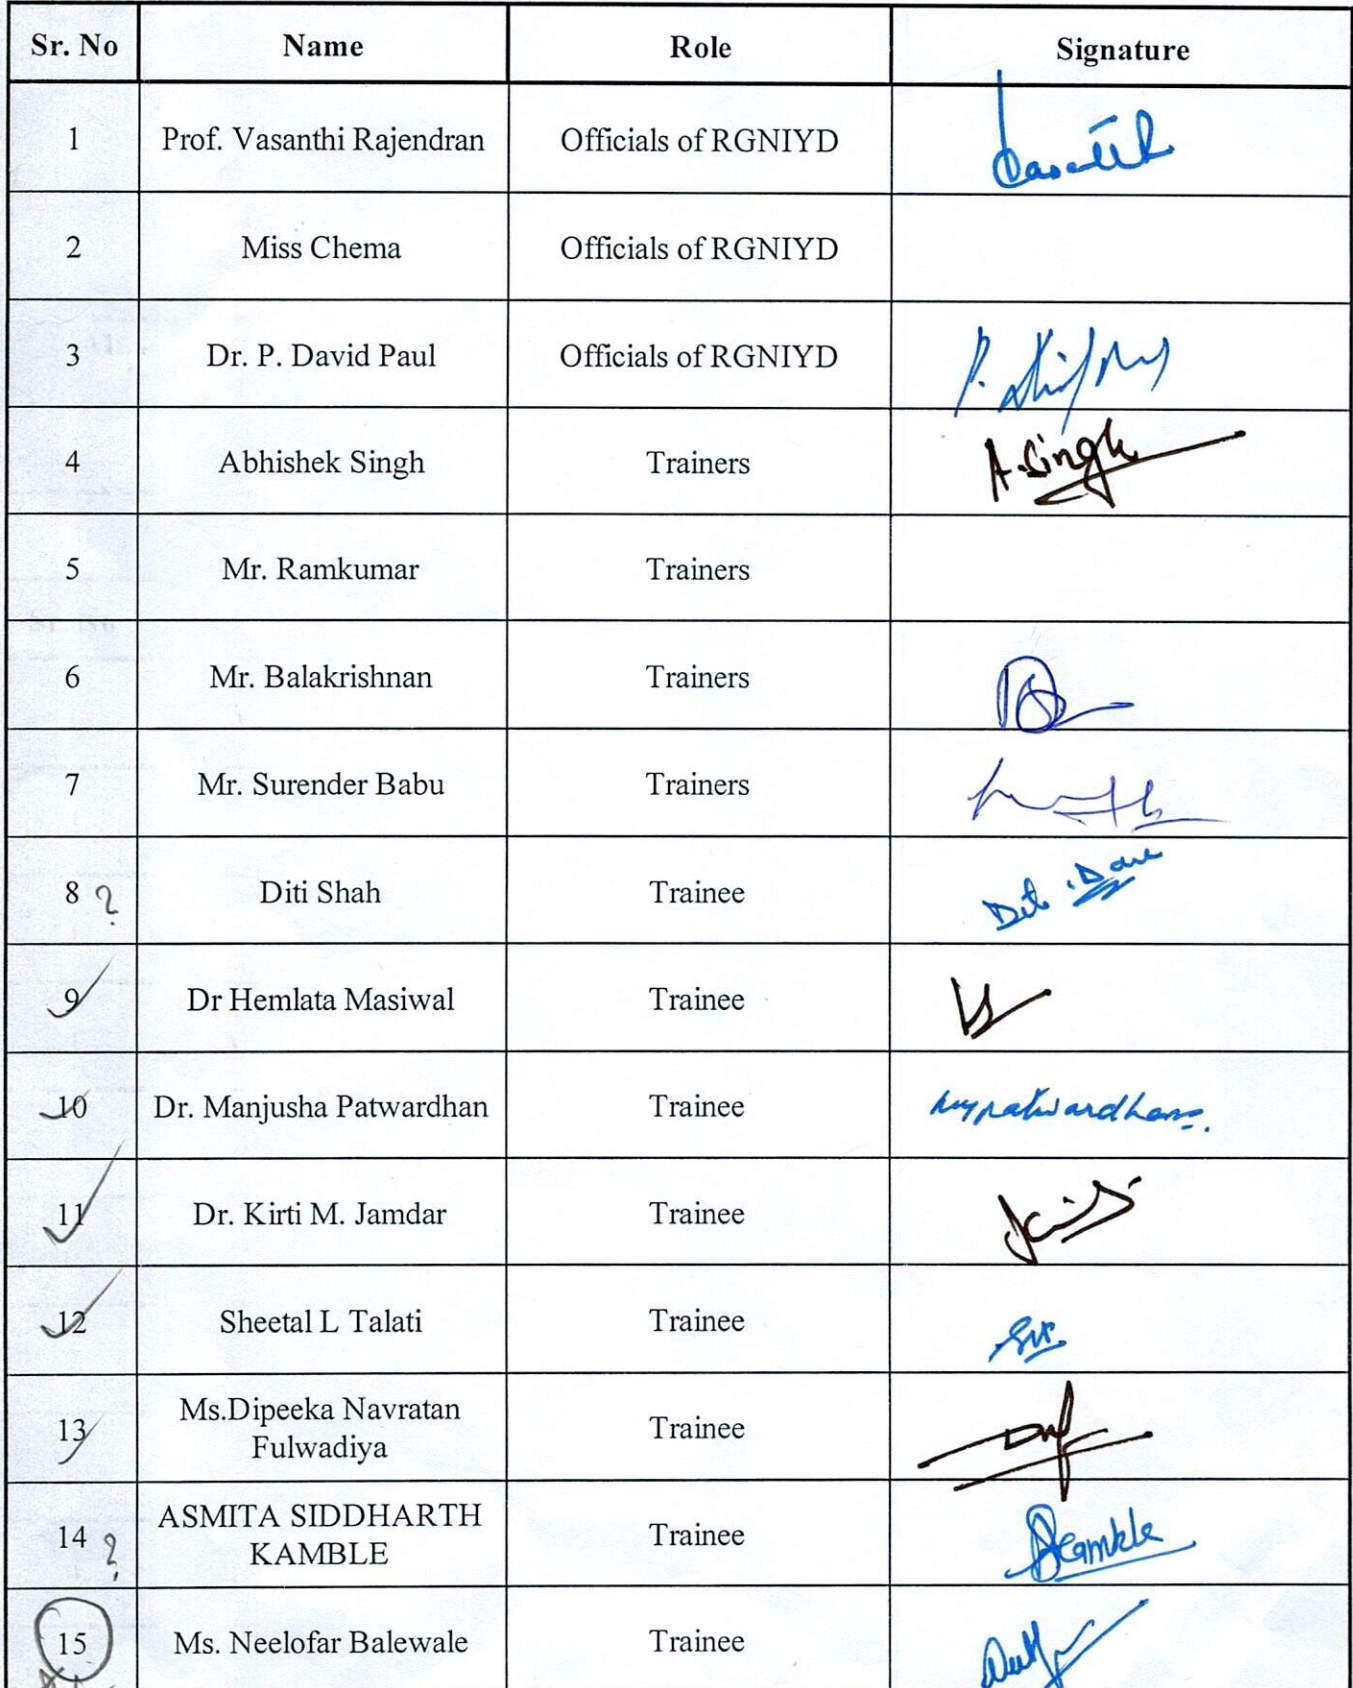 Sr. No Name Role Signature
1 Prof. Vasanthi Rajendran Officials of RGNIYD
2 Miss Chema Officials of RGNIYD
3 Dr. P. David Paul Officials of RGNIYD
4 Abhishek Singh Trainers A. Singh
5 Mr. Ramkumar Trainers
6 Mr. Balakrishnan Trainers
7 Mr. Surender Babu Trainers
8 ? Diti Shah Trainee
9 Dr Hemlata Masiwal Trainee
10 Dr. Manjusha Patwardhan Trainee
11 Dr. Kirti M. Jamdar Trainee
12 Sheetal L Talati Trainee
13 Ms.Dipeeka Navratan
Fulwadiya Trainee
14 ? ASMITA SIDDHARTH
KAMBLE Trainee
15 Ms. Neelofar Balewale Trainee